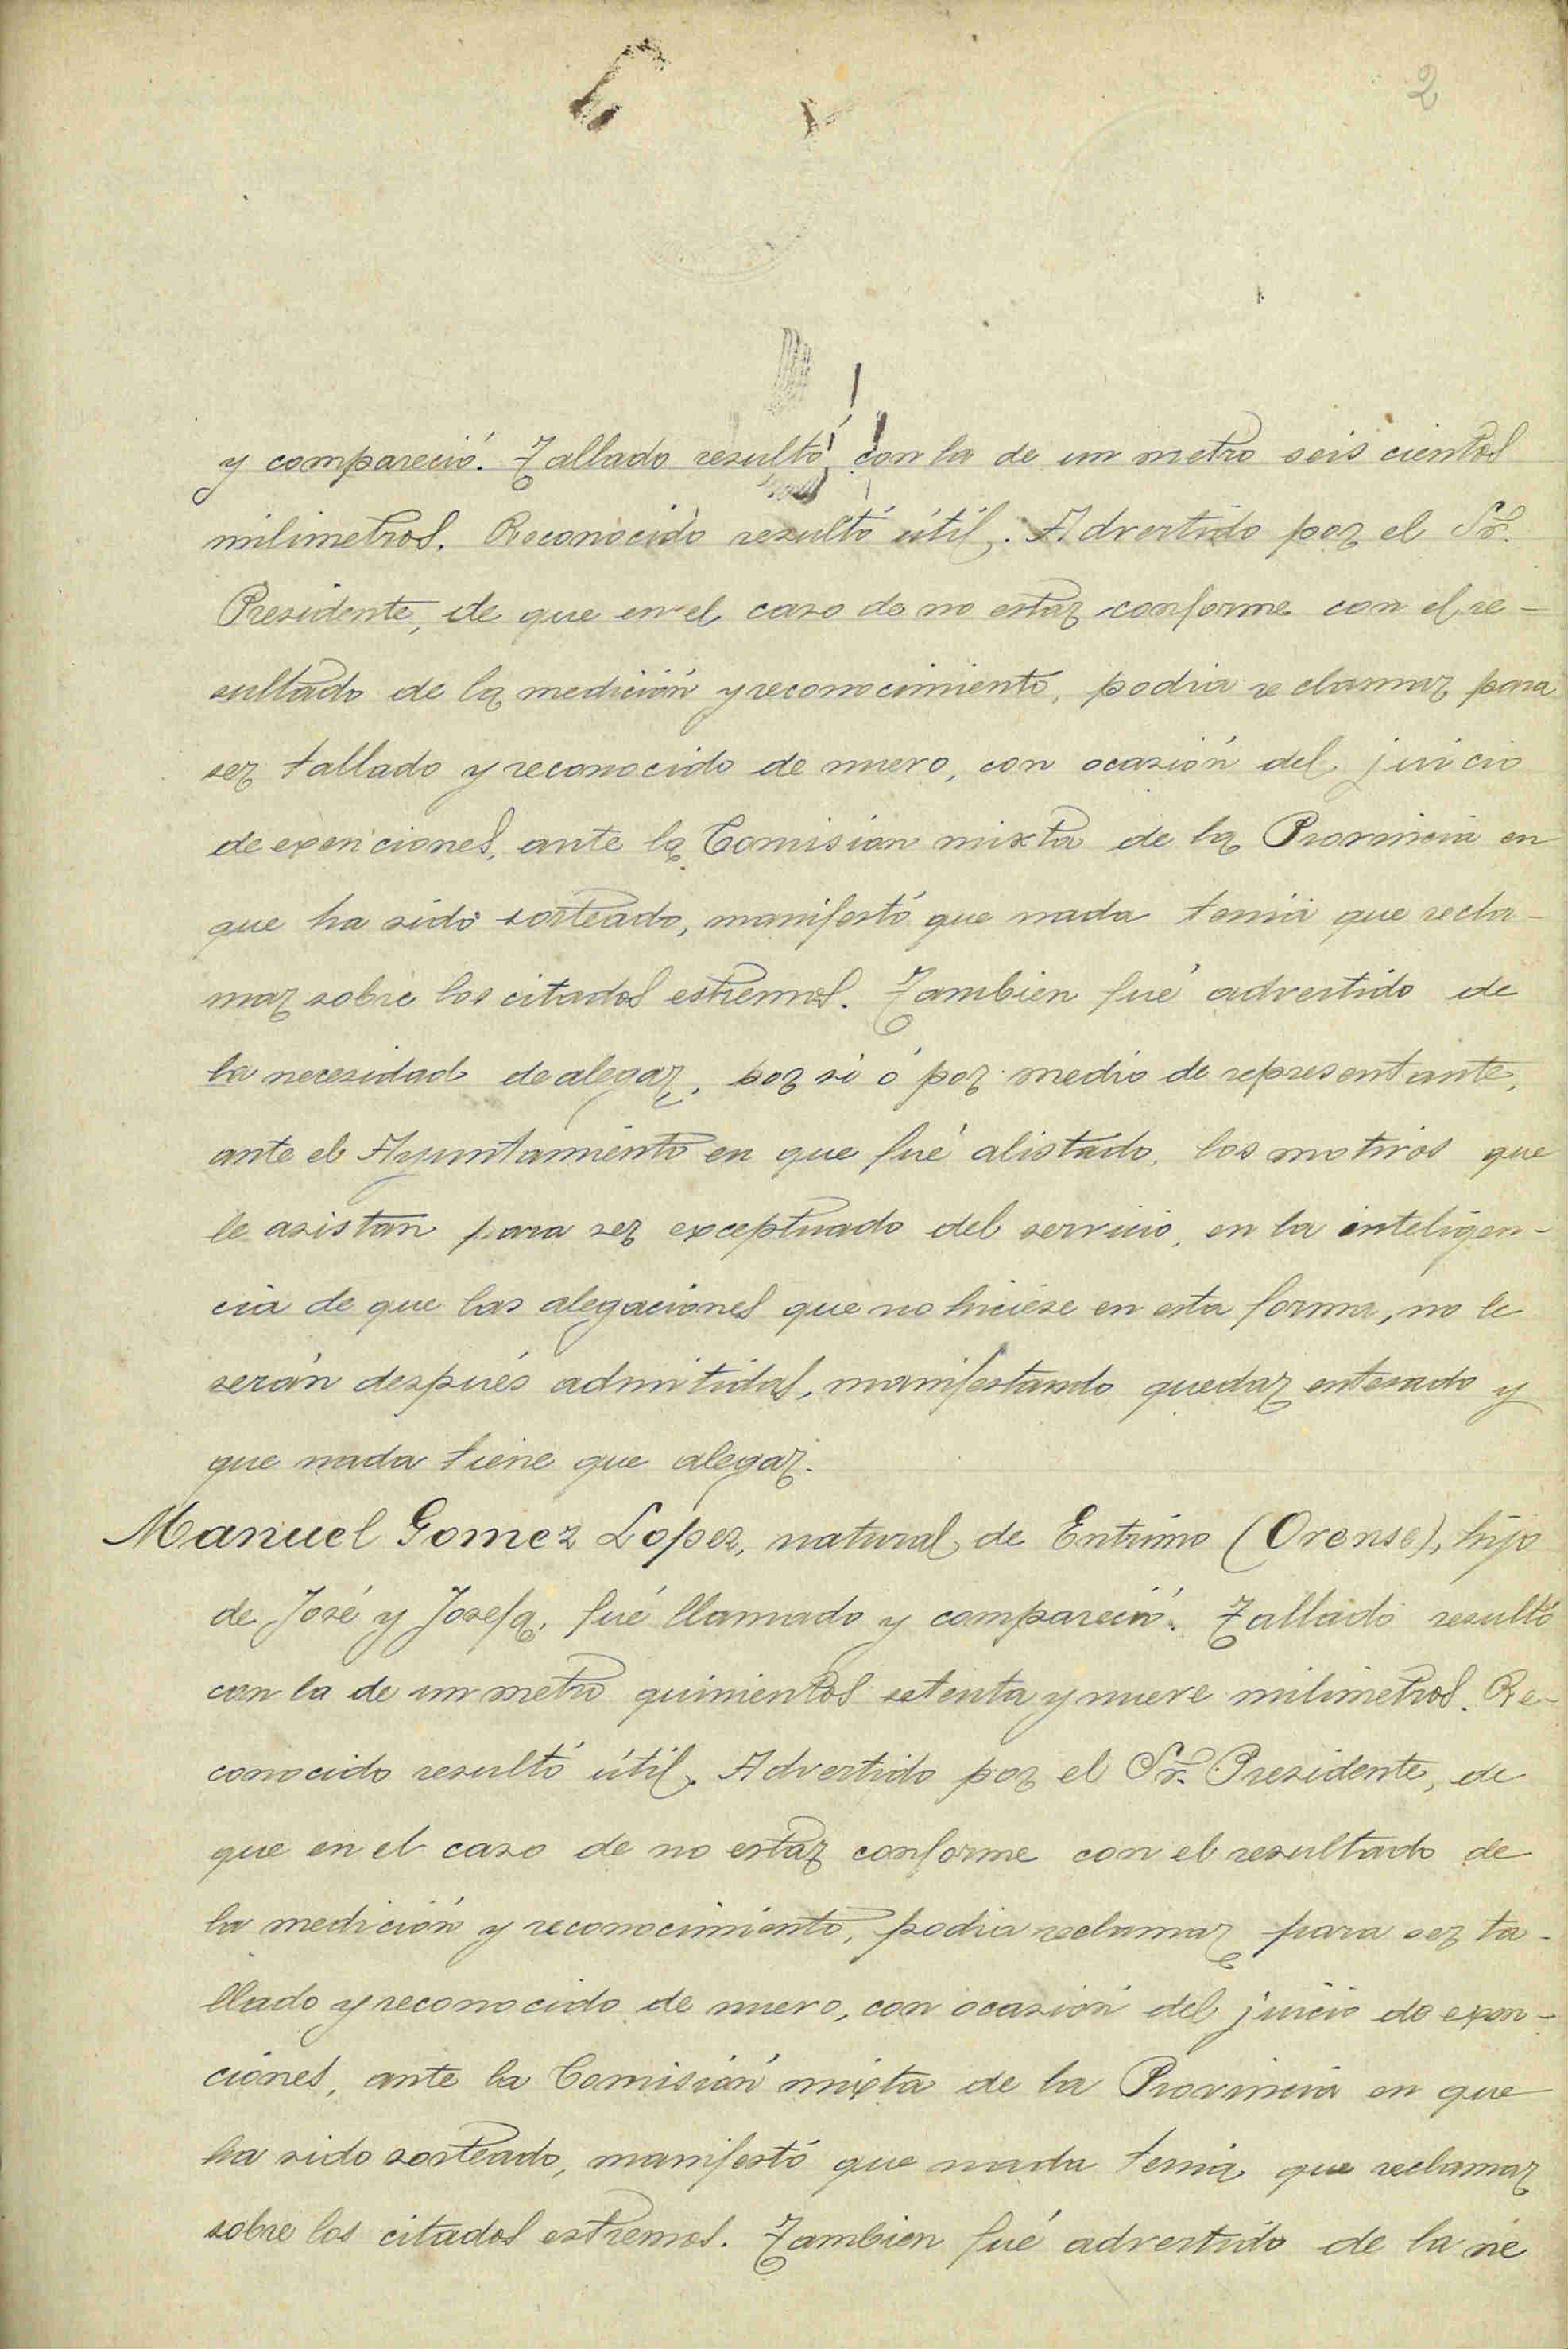 2
y compareció. Tallado resultó con la de un metro seis cientos
milimetros. Reconocido resultó útil. Advertido por el Sr.
Presidente, de que en el caso de no estar conforme con el re-
sultado de la medición y reconocimiento, podia reclamar para
ser tallado y reconocido de nuevo, con ocasión del juicio
de exenciones, ante la Comisión mixta de la Provincia en
que ha sido sorteado, manifestó que nada tenia que recla-
mar sobre los citados estremos. Tambien fué advertido de
la necesidad de alegar, por si ó por medio de representante,
ante el Ayuntamiento en que fué alistado, los motivos que
le asistan para ser exceptuado del servicio, en la inteligen-
cia de que las alegaciones que no hiciese en esta forma, no le
serán después admitidas, manifestando quedar enterado y
que nada tiene que alegar.
Manuel Gomez Lopez, natural de Entrimo (Orense), hijo
de José y Josefa, fué llamado y compareció. Tallado resultó
con la de un metro quinientos setenta y nueve milimetros. Re-
conocido resultó útil. Advertido por el Sr. Presidente, de
que en el caso de no estar conforme con el resultado de
la medición y reconocimiento, podia reclamar para ser ta-
llado y reconocido de nuevo, con ocasión del juicio de exen-
ciones, ante la Comisión mixta de la Provincia en que
ha sido sorteado, manifestó que nada tenia que reclamar
sobre los citados estremos. Tambien fué advertido de la ne